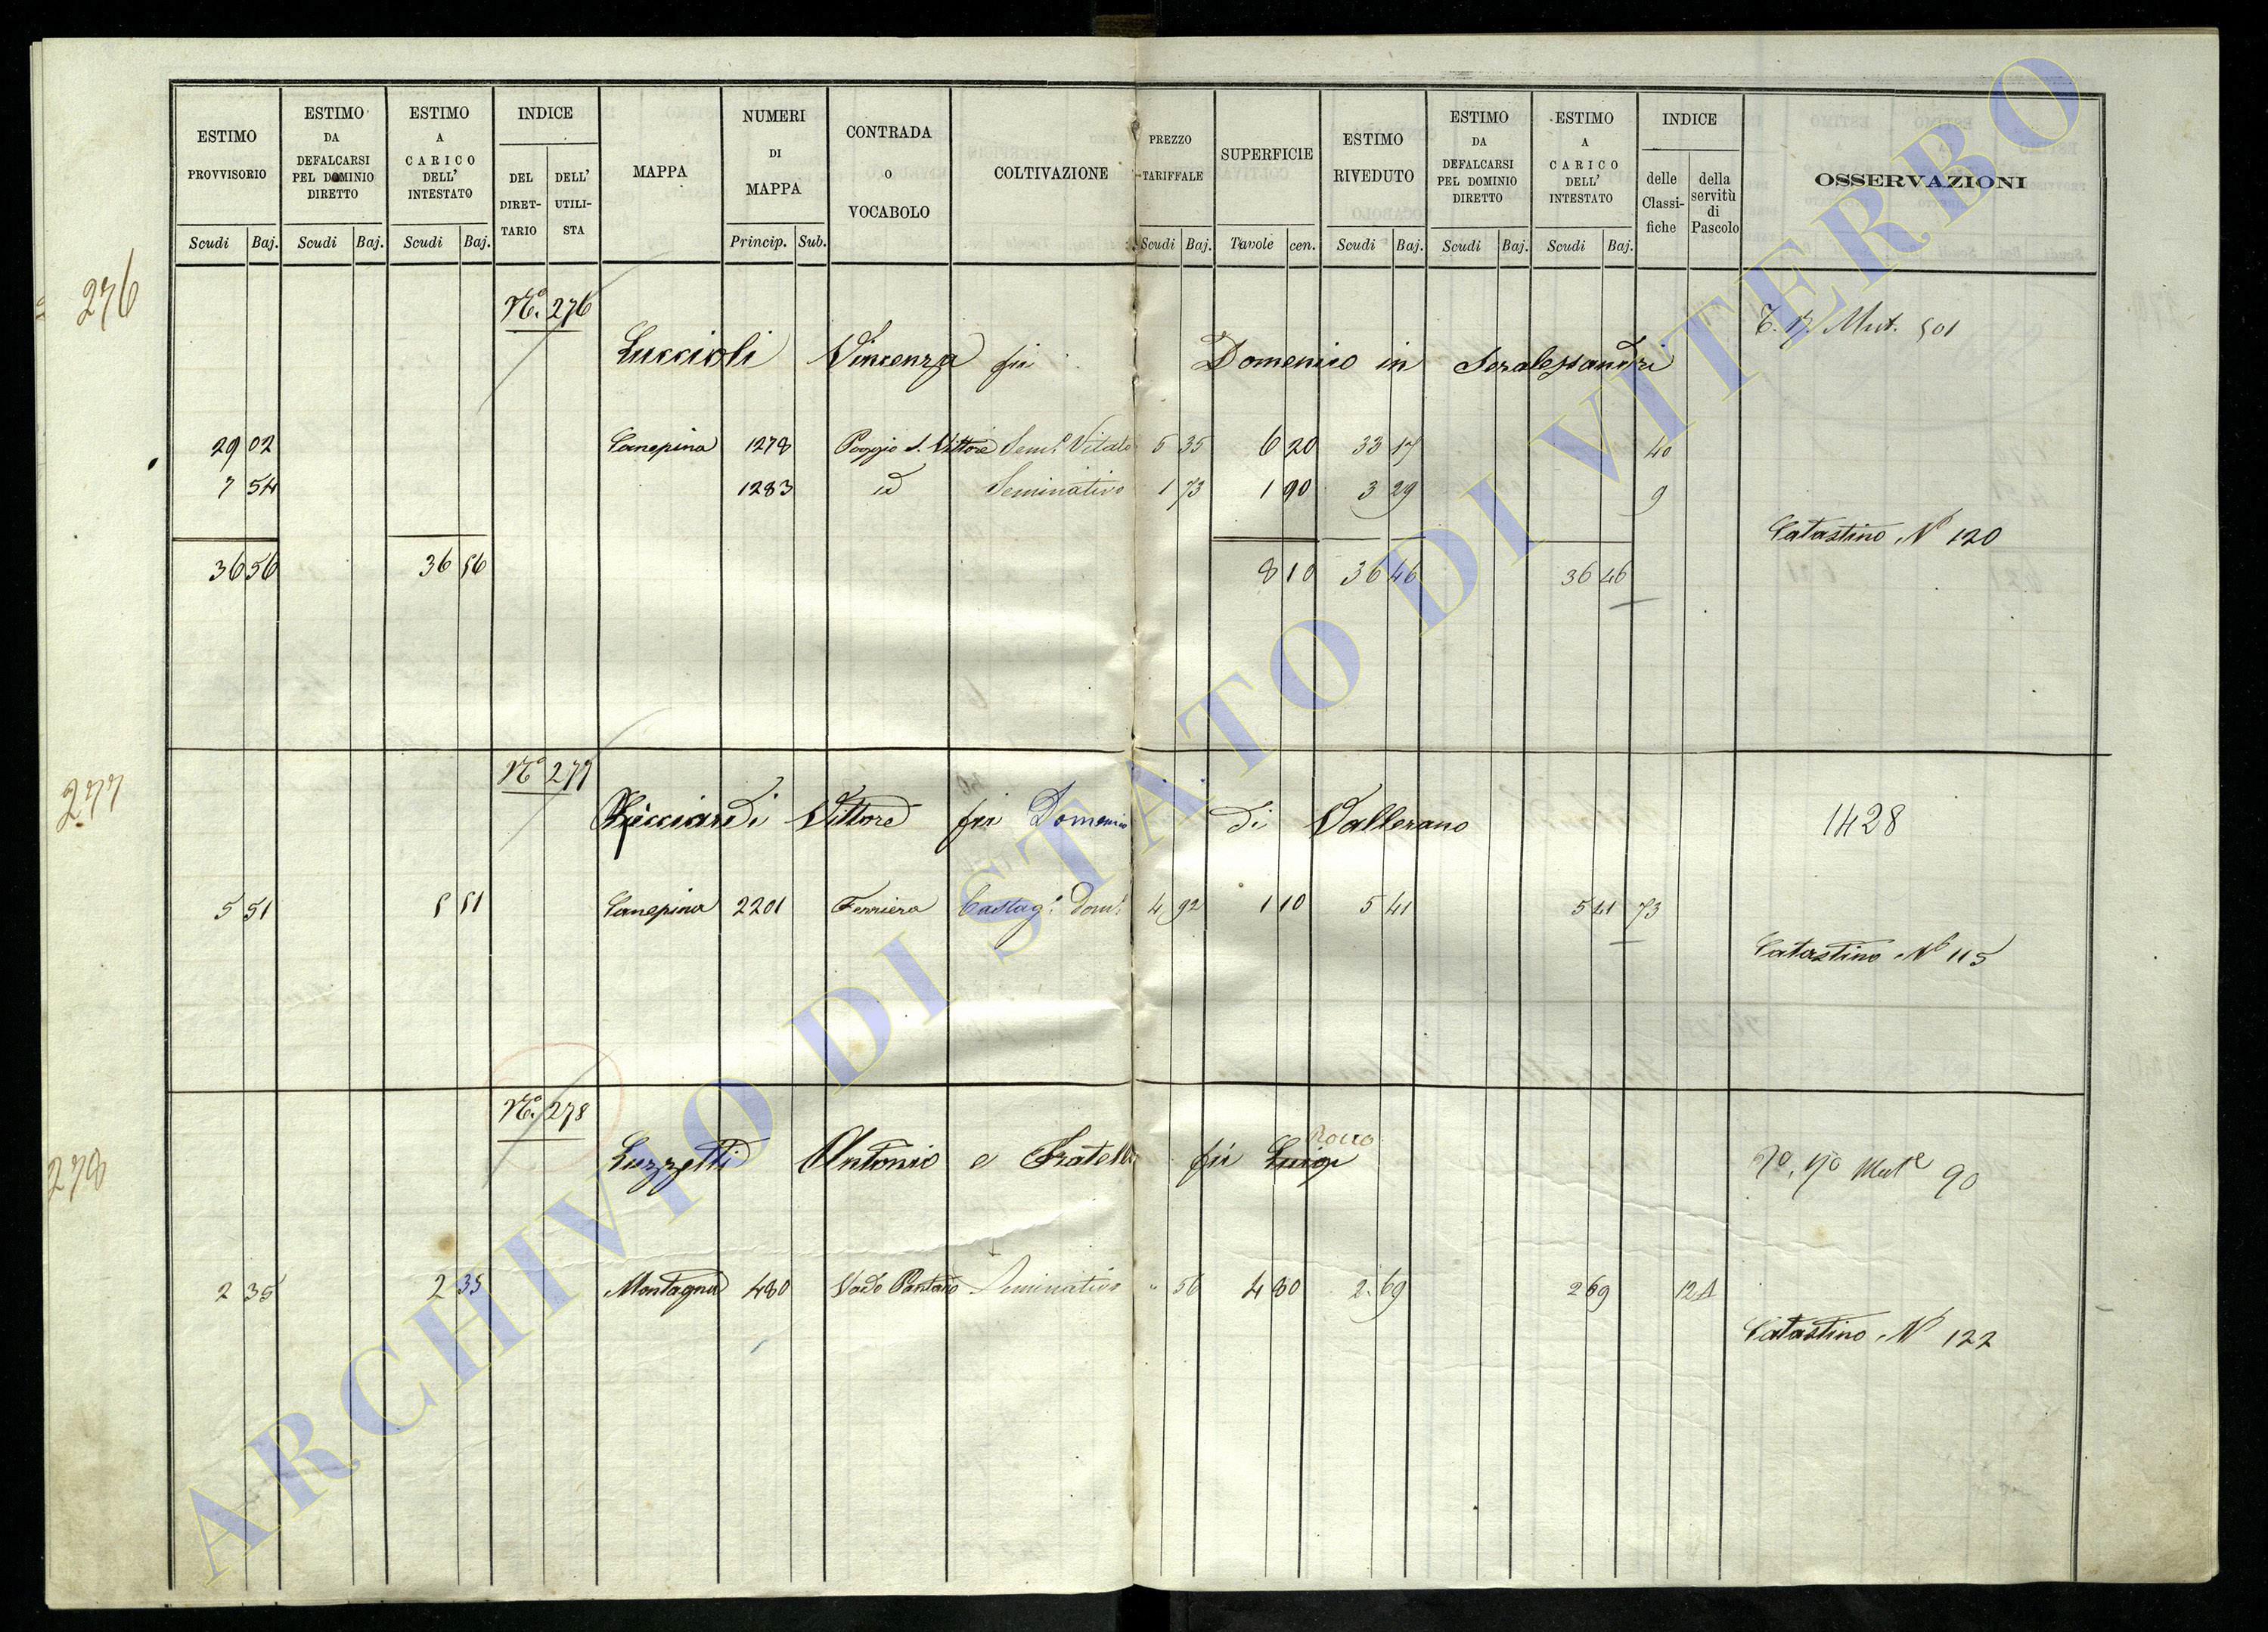 ESTIMO PROVVISORIO
ESTIMO DA DEFALCARSI PEL DOMINIO DIRETTO
ESTIMO A CARICO DELL' INTESTATO
INDICE
DEL DIRET-TARIO
DELL' UTILI-STA
MAPPA
NUMERI DI MAPPA
CONTRADA O VOCABOLO
COLTIVAZIONE
PREZZO TARIFFALE
SUPERFICIE
ESTIMO RIVEDUTO
ESTIMO DA DEFALCARSI PEL DOMINIO DIRETTO
ESTIMO A CARICO DELL' INTESTATO
INDICE
delle Classi-fiche
della servitù di Pascolo
OSSERVAZIONI
Scudi Baj. Scudi Baj. Scudi Baj. Princip. Sub. Scudi Baj. Tavole cen. Scudi Baj. Scudi Baj. Scudi Baj.
276
N.º 276
Luccioli Vincenza fu Domenico in Seralessandri
Mut. 501
29 02 Canepina 1278 Poggio S. Vittore Sem.º Vitato 5 35 6 20 33 17 40
7 54 1283 id Seminativo 1 73 1 90 3 29 9
Catastino Nº 120
36 56 36 56 8 10 36 46 36 46
277
Nº 277
Ricciardi Vittore fu Domenico di Vallerano
1428
5 51 5 51 Canepina 2201 Ferriera Castag.º Dom.º 4 92 1 10 5 41 5 41 73
Catastino Nº 115
278
N.º 278
Luzzetti Antonio e Fratelli fu Luigi Rocco
90
2 35 2 35 Montagna 480 Vado Pantano Seminativo " 56 4 80 2 69 2 69 12A
Catastino Nº 122
ARCHIVIO DI STATO DI VITERBO